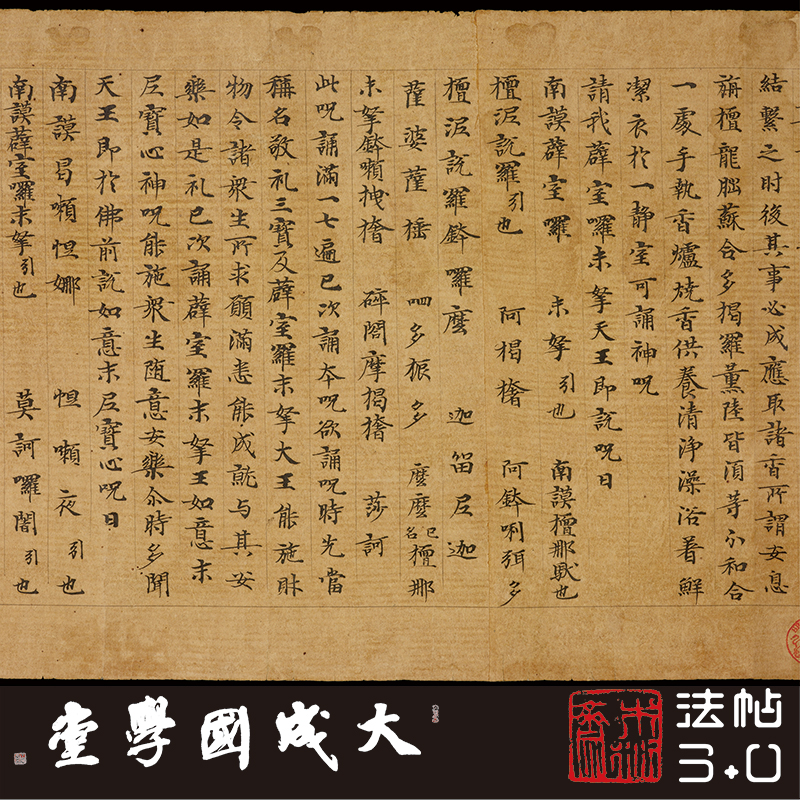 結繫之时後其事必成應取諸香所謂安息
旃檀龍𦙶蘇合多揭羅薰陸皆須等分和合
一處手執香爐燒香供養清浄澡浴著鮮
潔衣於一静室可誦神呪
請我薜室囉末拏天王即說呪曰
南謨薜室囉 末拏引也 南謨檀那馱也
檀泥說羅引也 阿揭撦 阿鉢唎弭多
檀泥說羅鉢囉麼 迦留尼迦
薩婆薩埵 呬多振多 麼麼己名檀那
末拏鉢𠹌拽撦 碎閻摩揭撦 莎訶
此呪誦滿一七遍已次誦夲呪欲誦呪時先當
稱名敬礼三寳及薜室羅末拏大王能施財
物令諸衆生所求願滿悉能成就与其安
樂如是礼已次誦薜室羅末拏王如意末
尼寳心神呪能施衆生随意安樂尒時多聞
天王即於佛前說如意末尼寳心呪曰
南謨曷囉怛娜 怛囉夜引也
南謨薜室囉末拏引也 莫訶囉闍引也
大成國學堂
法帖
3.0